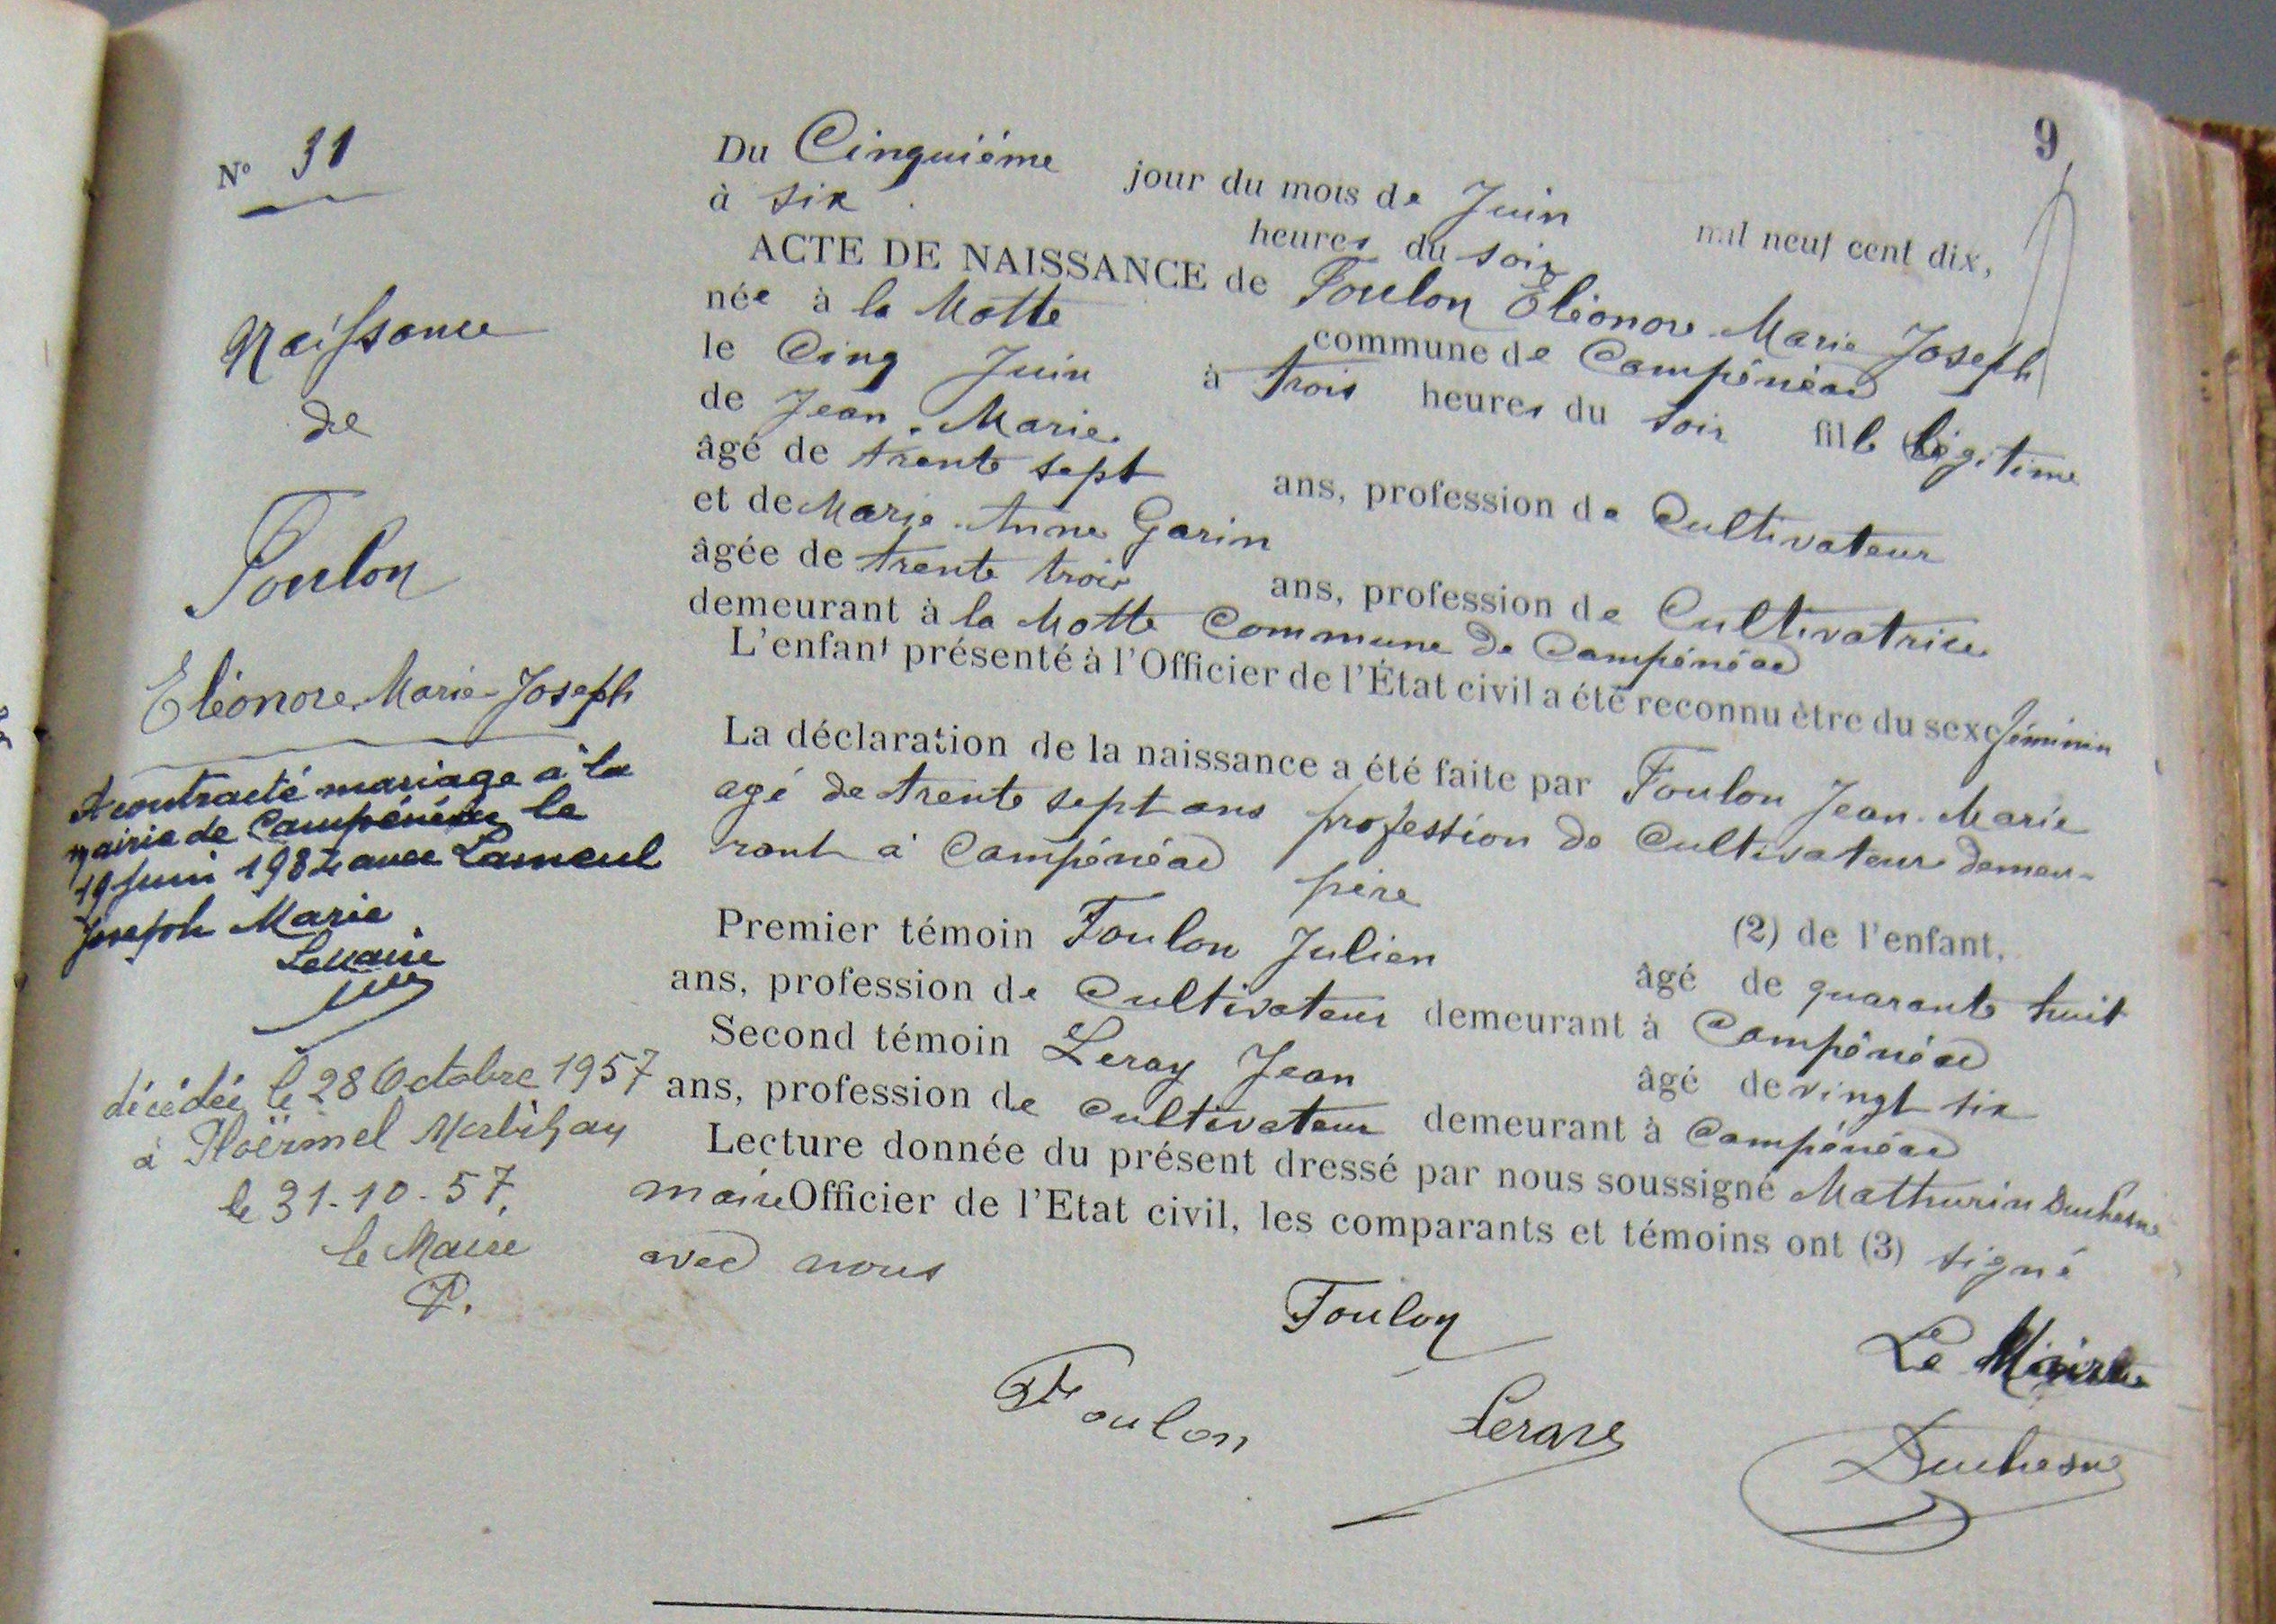 9
N° 31
Naissance
de
Foulon
Eléonore Marie-Joseph
A contracté mariage à la
mairie de Campénéac le
19 Juin 1934 avec Lameul
Joseph Marie
Le Maire
décédée le 28 Octobre 1957
à Ploërmel Morbihan
le 31-10-57.
le Maire
Du Cinquième jour du mois de Juin mil neuf cent dix,
à six heures du soir
ACTE DE NAISSANCE de Foulon Eléonore Marie Joseph
née à la Motte commune de Campénéac
le Cinq Juin à trois heures du soir fille légitime
de Jean-Marie
âgé de trente sept ans, profession de Cultivateur
et de Marie-Anne Garin
âgée de trente trois ans, profession de Cultivatrice
demeurant à la Motte Commune de Campénéac
L'enfant présenté à l'Officier de l'État civil a été reconnu être du sexe féminin
La déclaration de la naissance a été faite par Foulon Jean-Marie
agé de trente sept ans profession de Cultivateur demeu-
rant à Campénéac père (2) de l'enfant,
Premier témoin Foulon Julien âgé de quarante huit
ans, profession de Cultivateur demeurant à Campénéac
Second témoin Leray Jean âgé de vingt six
ans, profession de cultivateur demeurant à Campénéac
Lecture donnée du présent dressé par nous soussigné Mathurin Duchesne
maire Officier de l'Etat civil, les comparants et témoins ont (3) signé
avec nous
Foulon
Le Maire
Foulon
Leray
Duchesne